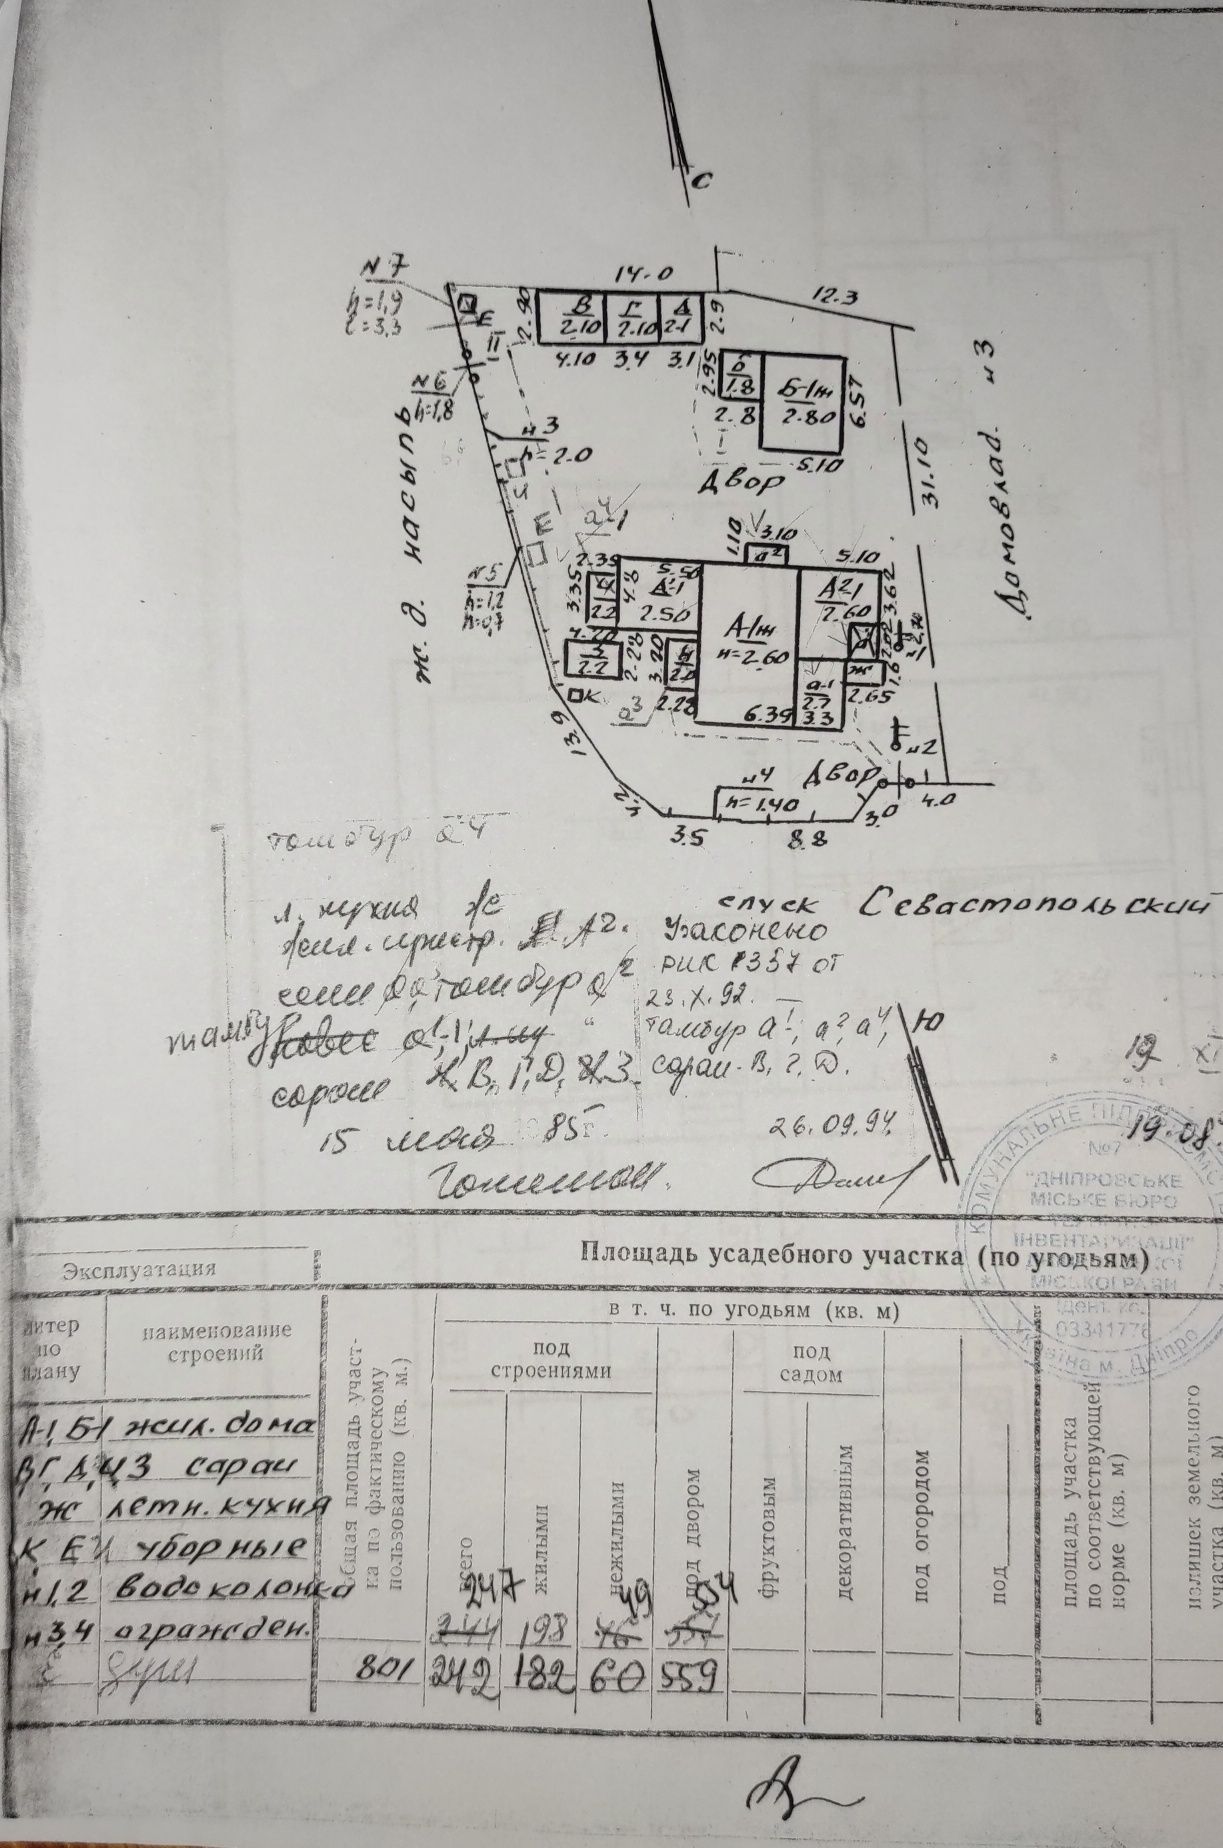 С
N7
h=1,9
l=3,3
14.0
12.3
2.90
В
2.10
Г
2.10
Д
2.1
2.9
Е
II
4.10
3.4
3.1
N6
h=1,8
2.95
б
1.8
2.8
Б-1ж
2.80
6.57
5.10
I
Двор
н3
h=2.0
ж.д. насыпь
31.10
Домовлад. н3
Е
а4-1
N5
h=1,2
h=0,7
2.35
3.35
2.2
4.8
5.50
А'-1
2.50
1.10
3.10
а2
5.10
А2-1
2.60
3.62
А-1ж
н=2.60
4.20
З
2.2
2.28
3.20
2.0
2.02
1.6
ж
2.65
К
а3
2.28
6.39
а-1
2.7
3.3
13.9
н2
Двор
н4
h=1.40
4.2
3.5
8.8
3.0
4.0
тамбур а4
спуск Севастопольский
л. кухня Ж
Узаконено
жил. пристр. А2.
РИК 357 от
тамбур а2
23.X.92. —
тамбур а'-1,
тамбур а'-1, а2, а4,
Ю
сараи В, Г, Д, И, З.
сараи. В, Г, Д.
15 мая 85г.
26.09.94.
19 XI
19.08.
КОМУНАЛЬНЕ ПІДПРИЄМСТВО
№7
"ДНІПРОВСЬКЕ
МІСЬКЕ БЮРО
ІНВЕНТАРИЗАЦІЇ"
МІСЬКОЇ РАДИ
Ідент. код
03341778
Україна м. Дніпро
Эксплуатация
Площадь усадебного участка (по угодьям)
литер по плану
наименование строений
общая площадь участка по фактическому пользованию (кв. м.)
в т. ч. по угодьям (кв. м)
под строениями
всего
жилыми
нежилыми
под двором
под садом
фруктовым
декоративным
под огородом
под
площадь участка по соответствующей норме (кв. м)
излишек земельного участка (кв. м)
А-1, Б-1 жил. дома
В, Г, Д, И, З сараи
Ж летн. кухня
К Е уборные
н1,2 водоколонка
247 49 554
н3,4 огражден.
244 198 46 557
душ
801 242 182 60 559